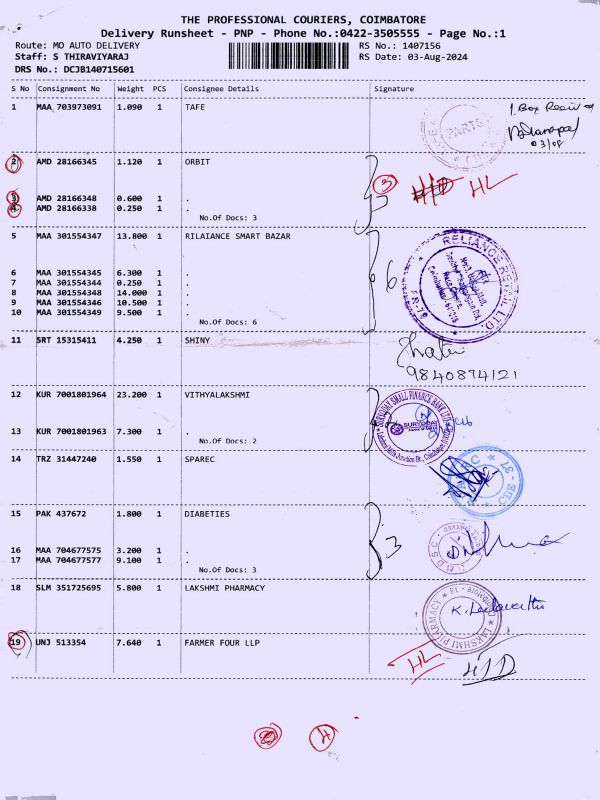 THE PROFESSIONAL COURIERS, COIMBATORE
Delivery Runsheet - PNP - Phone No.:0422-3505555 - Page No.:1
Route: MO AUTO DELIVERY
RS No.: 1407156
Staff: S THIRAVIYARAJ
RS Date: 03-Aug-2024
DRS No.: DCJB140715601
S No Consignment No Weight PCS Consignee Details Signature
1 MAA 703973091 1.090 1 TAFE
1 Box
PARTS
03/08
2 AMD 28166345 1.120 1 ORBIT
3 HL
3 AMD 28166348 0.600 1 .
4 AMD 28166338 0.250 1 .
No.Of Docs: 3
5 MAA 301554347 13.800 1 RILAIANCE SMART BAZAR
RELIANCE RETAIL LTD.
6
6 MAA 301554345 6.300 1 .
7 MAA 301554344 0.250 1 .
8 MAA 301554348 14.000 1 .
9 MAA 301554346 10.500 1 .
10 MAA 301554349 9.500 1 .
No.Of Docs: 6
11 SRT 15315411 4.250 1 SHINY
9840874121
12 KUR 7001801964 23.200 1 VITHYALAKSHMI
SURYODAY SMALL FINANCE BANK LTD
SURYODAY
13 KUR 7001801963 7.300 1 .
No.Of Docs: 2
14 TRZ 31447240 1.550 1 SPAREC
15 PAK 437672 1.800 1 DIABETIES
3
16 MAA 704677575 3.200 1 .
17 MAA 704677577 9.100 1 .
No.Of Docs: 3
18 SLM 351725695 5.800 1 LAKSHMI PHARMACY
LAKSHMI PHARMACY
19 UNJ 513354 7.640 1 FARMER FOUR LLP
HL
4